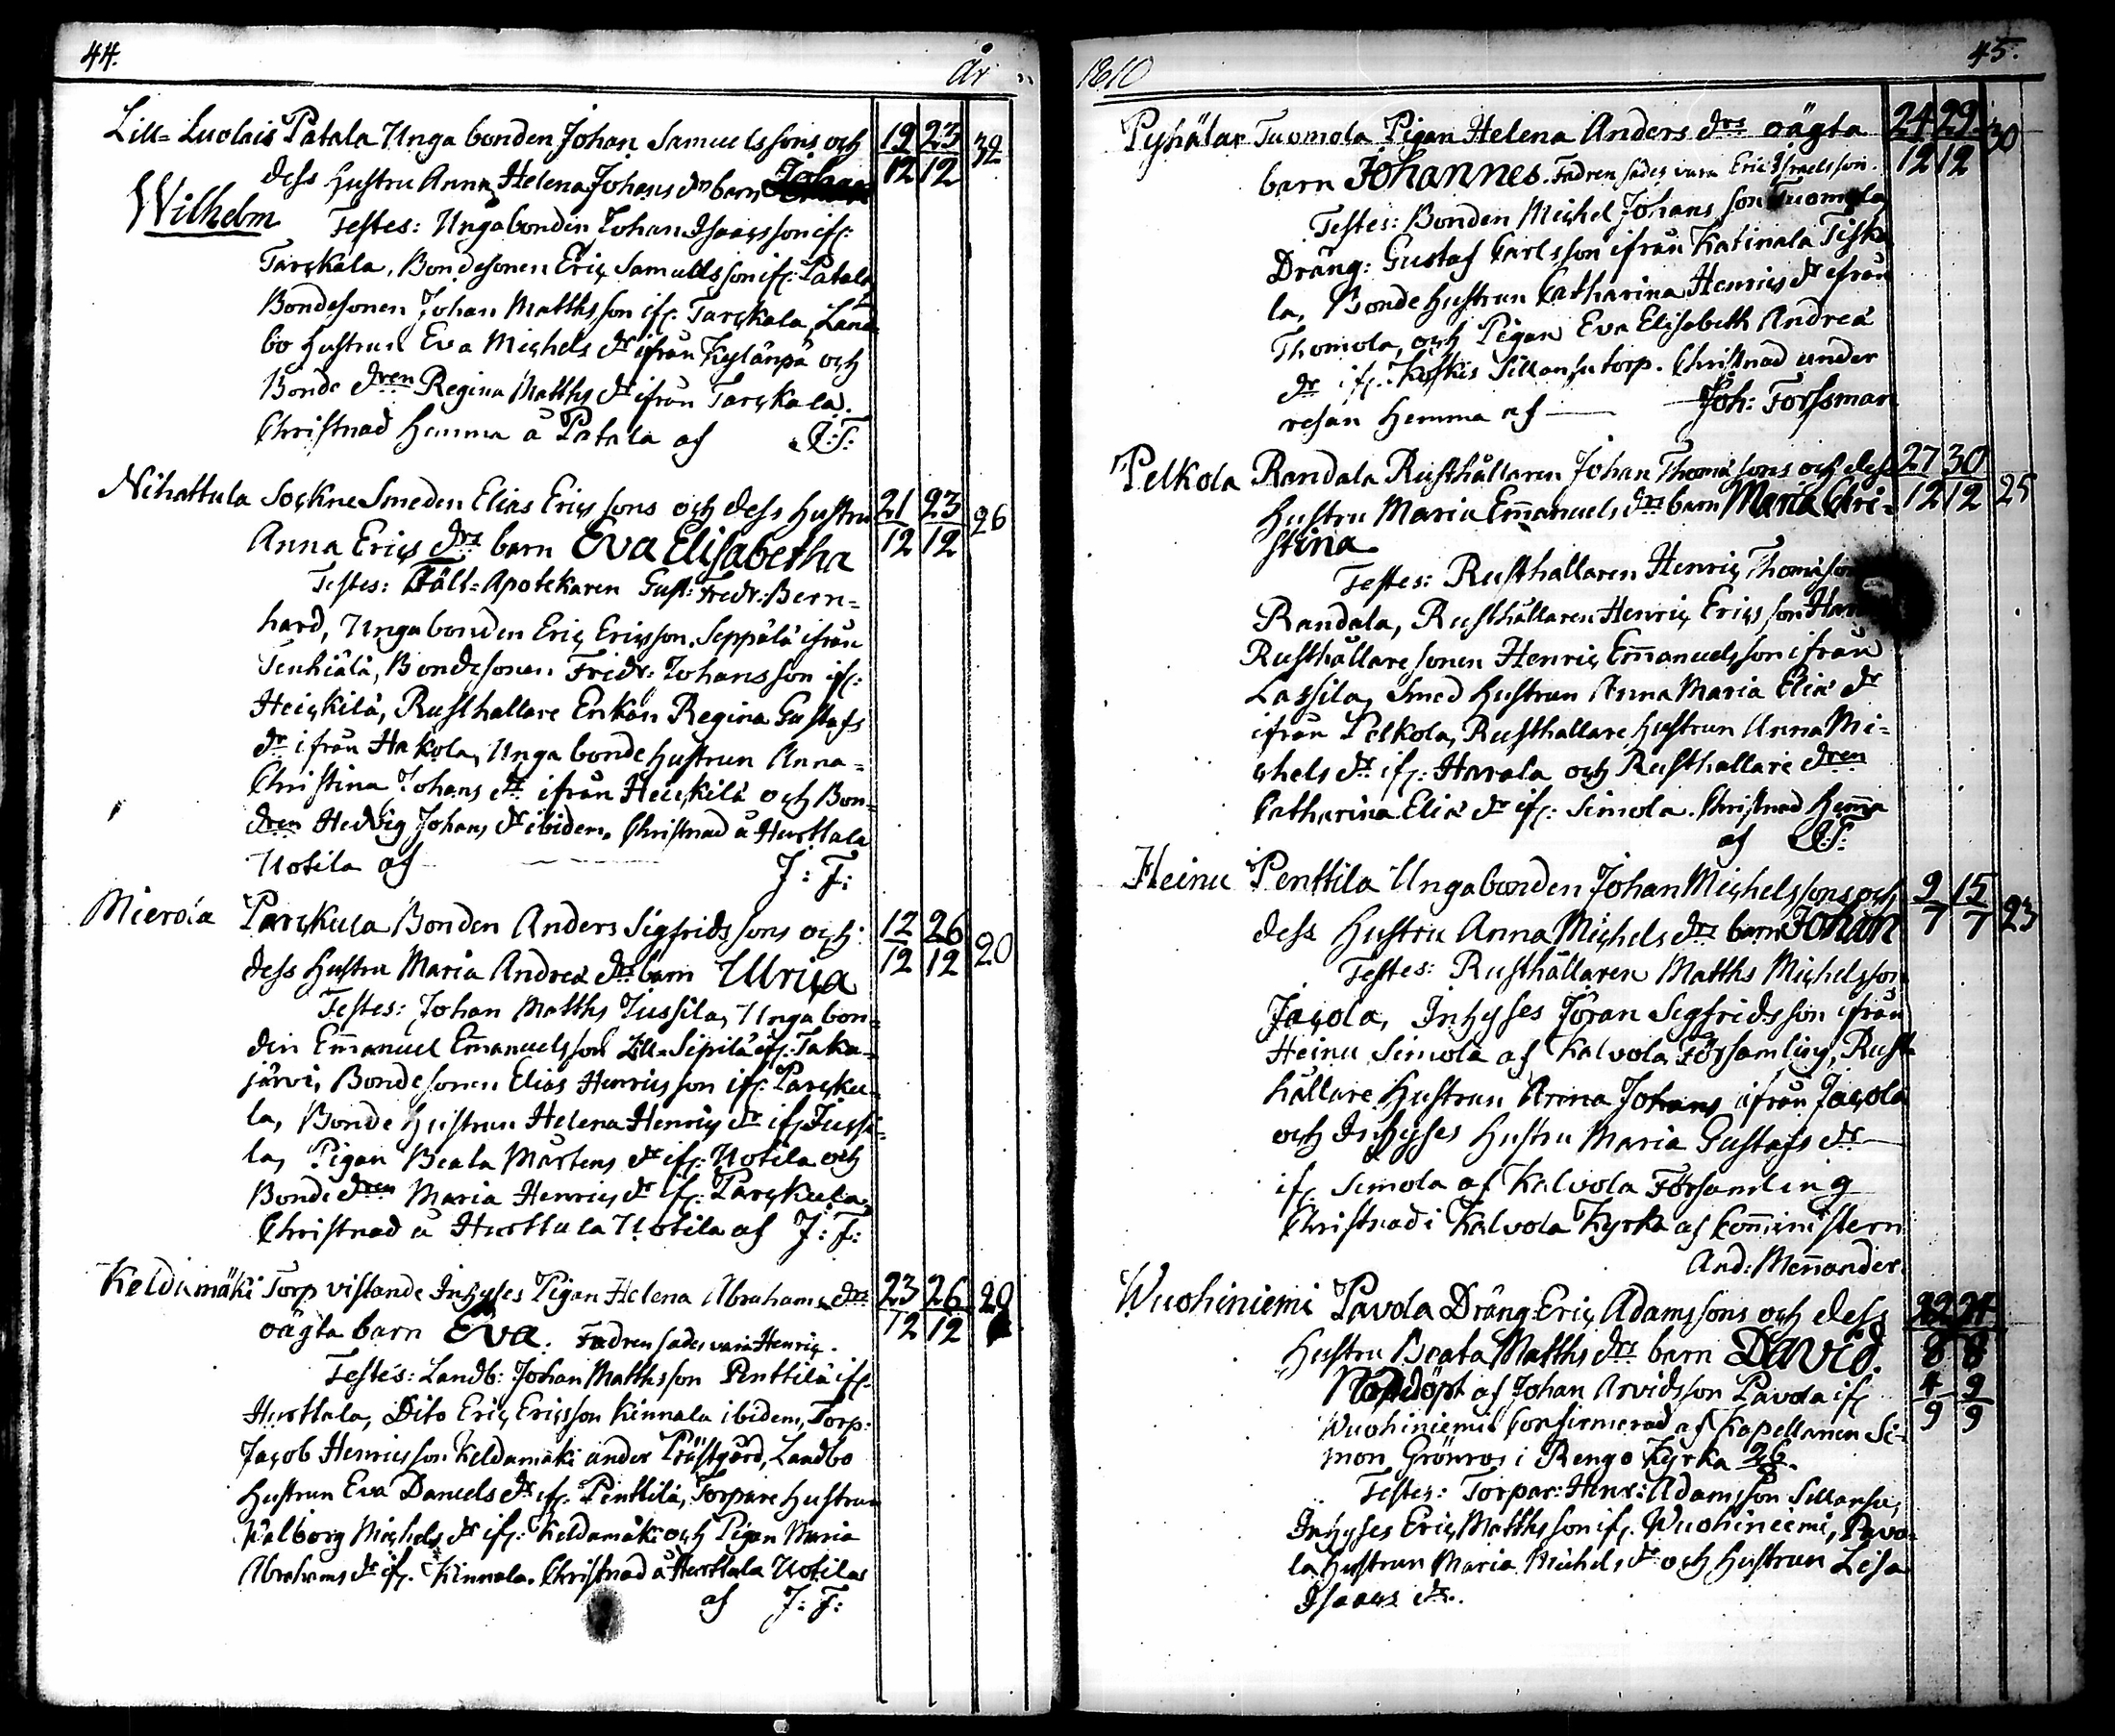 44.
År
Lill- Luolais Patala Unga bonden Johan Samuelssons och 19 23 32
dess Hustru Anna Helena Johans drs barn 12 12
Wilhelm Testes: Ungabonden Johan Isaacsson ifr:
Tarckala, Bondesonen Eric Samuelsson ifr: Patala
Bondesonen Johan Matthsson ifr. Tarckala, Land
bo Hustrun Eva Michels dr ifrån Kylänpä och
Bonde dren Regina Matths dr ifrån Tarckala.
Christnad Hemma å Patala af J:F:
Nihattula Sockne Smeden Elias Erics sons och dess Hustru 21 23 26
Anna Erics drs barn Eva Elisabetha 12 12
Testes: Fält-Apotekaren Gust: Fredr: Bern=
hard, Unga bonden Eric Ericsson Seppälä ifrån
Tenhiälä, Bondesonen Fridr: Johansson ifr:
Heickilä, Rusthallare Enkan Regina Gustafs
dr ifrån Hakola, Unga bonde Hustrun Anna-
Christina Johans dr ifrån Heickilä och Bon-
dren Hedvig Johans dr ibidem. Christnad å Hurttala
Uotila af J: F:
Mierola Parckula Bonden Anders Sigfrids sons och 12 26 20
dess Hustru Maria Andreæ drs barn Ulrica 12 12
Testes: Johan Matths Jussila, Unga bon-
den Emanuel Emanuelsson Lill-Sipilä ifr. Taka-
järvi, Bondesonen Elias Henricsson ifr. Parcku-
la, Bonde Hustrun Helena Henrics dr ifr. Jussi-
la, Pigan Beata Mårtens dr ifr: Uotila och
Bonde dren Maria Henrics dr ifr. Parckula,
Christnad å Hurttula Uotila af J: F:
Keldamäki Torp vistande Inhyses Pigan Helena Abrahams drs 23 26 29
oägta barn Eva. Fadren sades vara Henric. 12 12
Testes: Landb: Johan Matthsson Penttilä ifr.
Hurttala, Dito Eric Ericsson Kinnala ibidem, Torp:
Jacob Henricsson Keldamäki under Prästgård, Landbo
Hustrun Eva Daniels dr ifr. Penttilä, Torpare Hustrun
Walborg Michels dr ifr: Keldamäki och Pigan Maria
Abrahams dr ifr. Kinnala. Christnad å Hurttula Uotilas
af J: F:
1810
45.
Pyhälax Tuomola Pigan Helena Anders drs oägta 24 29 30
barn Johannes. Fadren sades vara Eric Israelsson. 12 12
Testes: Bonden Michel Johansson Tuomola,
Dräng: Gustaf Carlsson ifrån Katinala Tiska
la, Bonde Hustrun Catharina Henrics dr ifrån
Thomola, och Pigan Eva Elisabeth Andreæ
dr ifr. Koskis Sillansu torp. Christnad under
resan Hemma af Joh: Forssman
Pelkola Randala Rusthållaren Johan Thomæ sons och dess 27 30 25
Hustru Maria Emanuels drs barn Maria Chri- 12 12
stina
Testes: Rusthallaren Henric Thomæson
Randala, Rusthållaren Henric Ericsson
Rusthållaresonen Henric Emanuelsson ifrån
Lassila, Smed Hustrun Anna Maria Eliæ dr
ifrån Pelkola, Rusthallare Hustrun Anna Mi-
chels dr ifr. Harala och Rusthallare dren
Catharina Eliæ dr ifr: Simola. Christnad Hemma
af J:F:
Heinu Penttila Ungabonden Johan Michelssons och 9 15 23
dess Hustru Anna Michels drs barn Johan 7 7
Testes: Rusthållaren Matths Michelsson
Jacola, Inhyses Jöran Segfridsson ifrån
Heinu Simola af Kalvola Församling, Rust-
hållare Hustrun Anna Johans ifrån Jacola
och Inhyses Hustru Maria Gustafs dr
ifr Simola af Kalvola Församling
Christnad i Kalvola Kyrka af Comministern
And: Mennander.
Wuohiniemi Pavola Dräng Eric Adamssons och dess 22 24
Hustru Beata Matths drs barn David. 8 8
Nöddöpt af Johan Arvidsson Pavola ifr 4 9
Wuohiniemi Confirmerad af Kapellanen Si- 9 9
mon Grönros i Rengo Kyrka 26/8.
Testes: Torpar: Henr: Adamsson Sillansu,
Inhyses Eric Matthsson ifr. Wuohiniemi, Pavo-
la Hustrun Maria Michels dr och Hustrun Lisa
Isaacs dr.